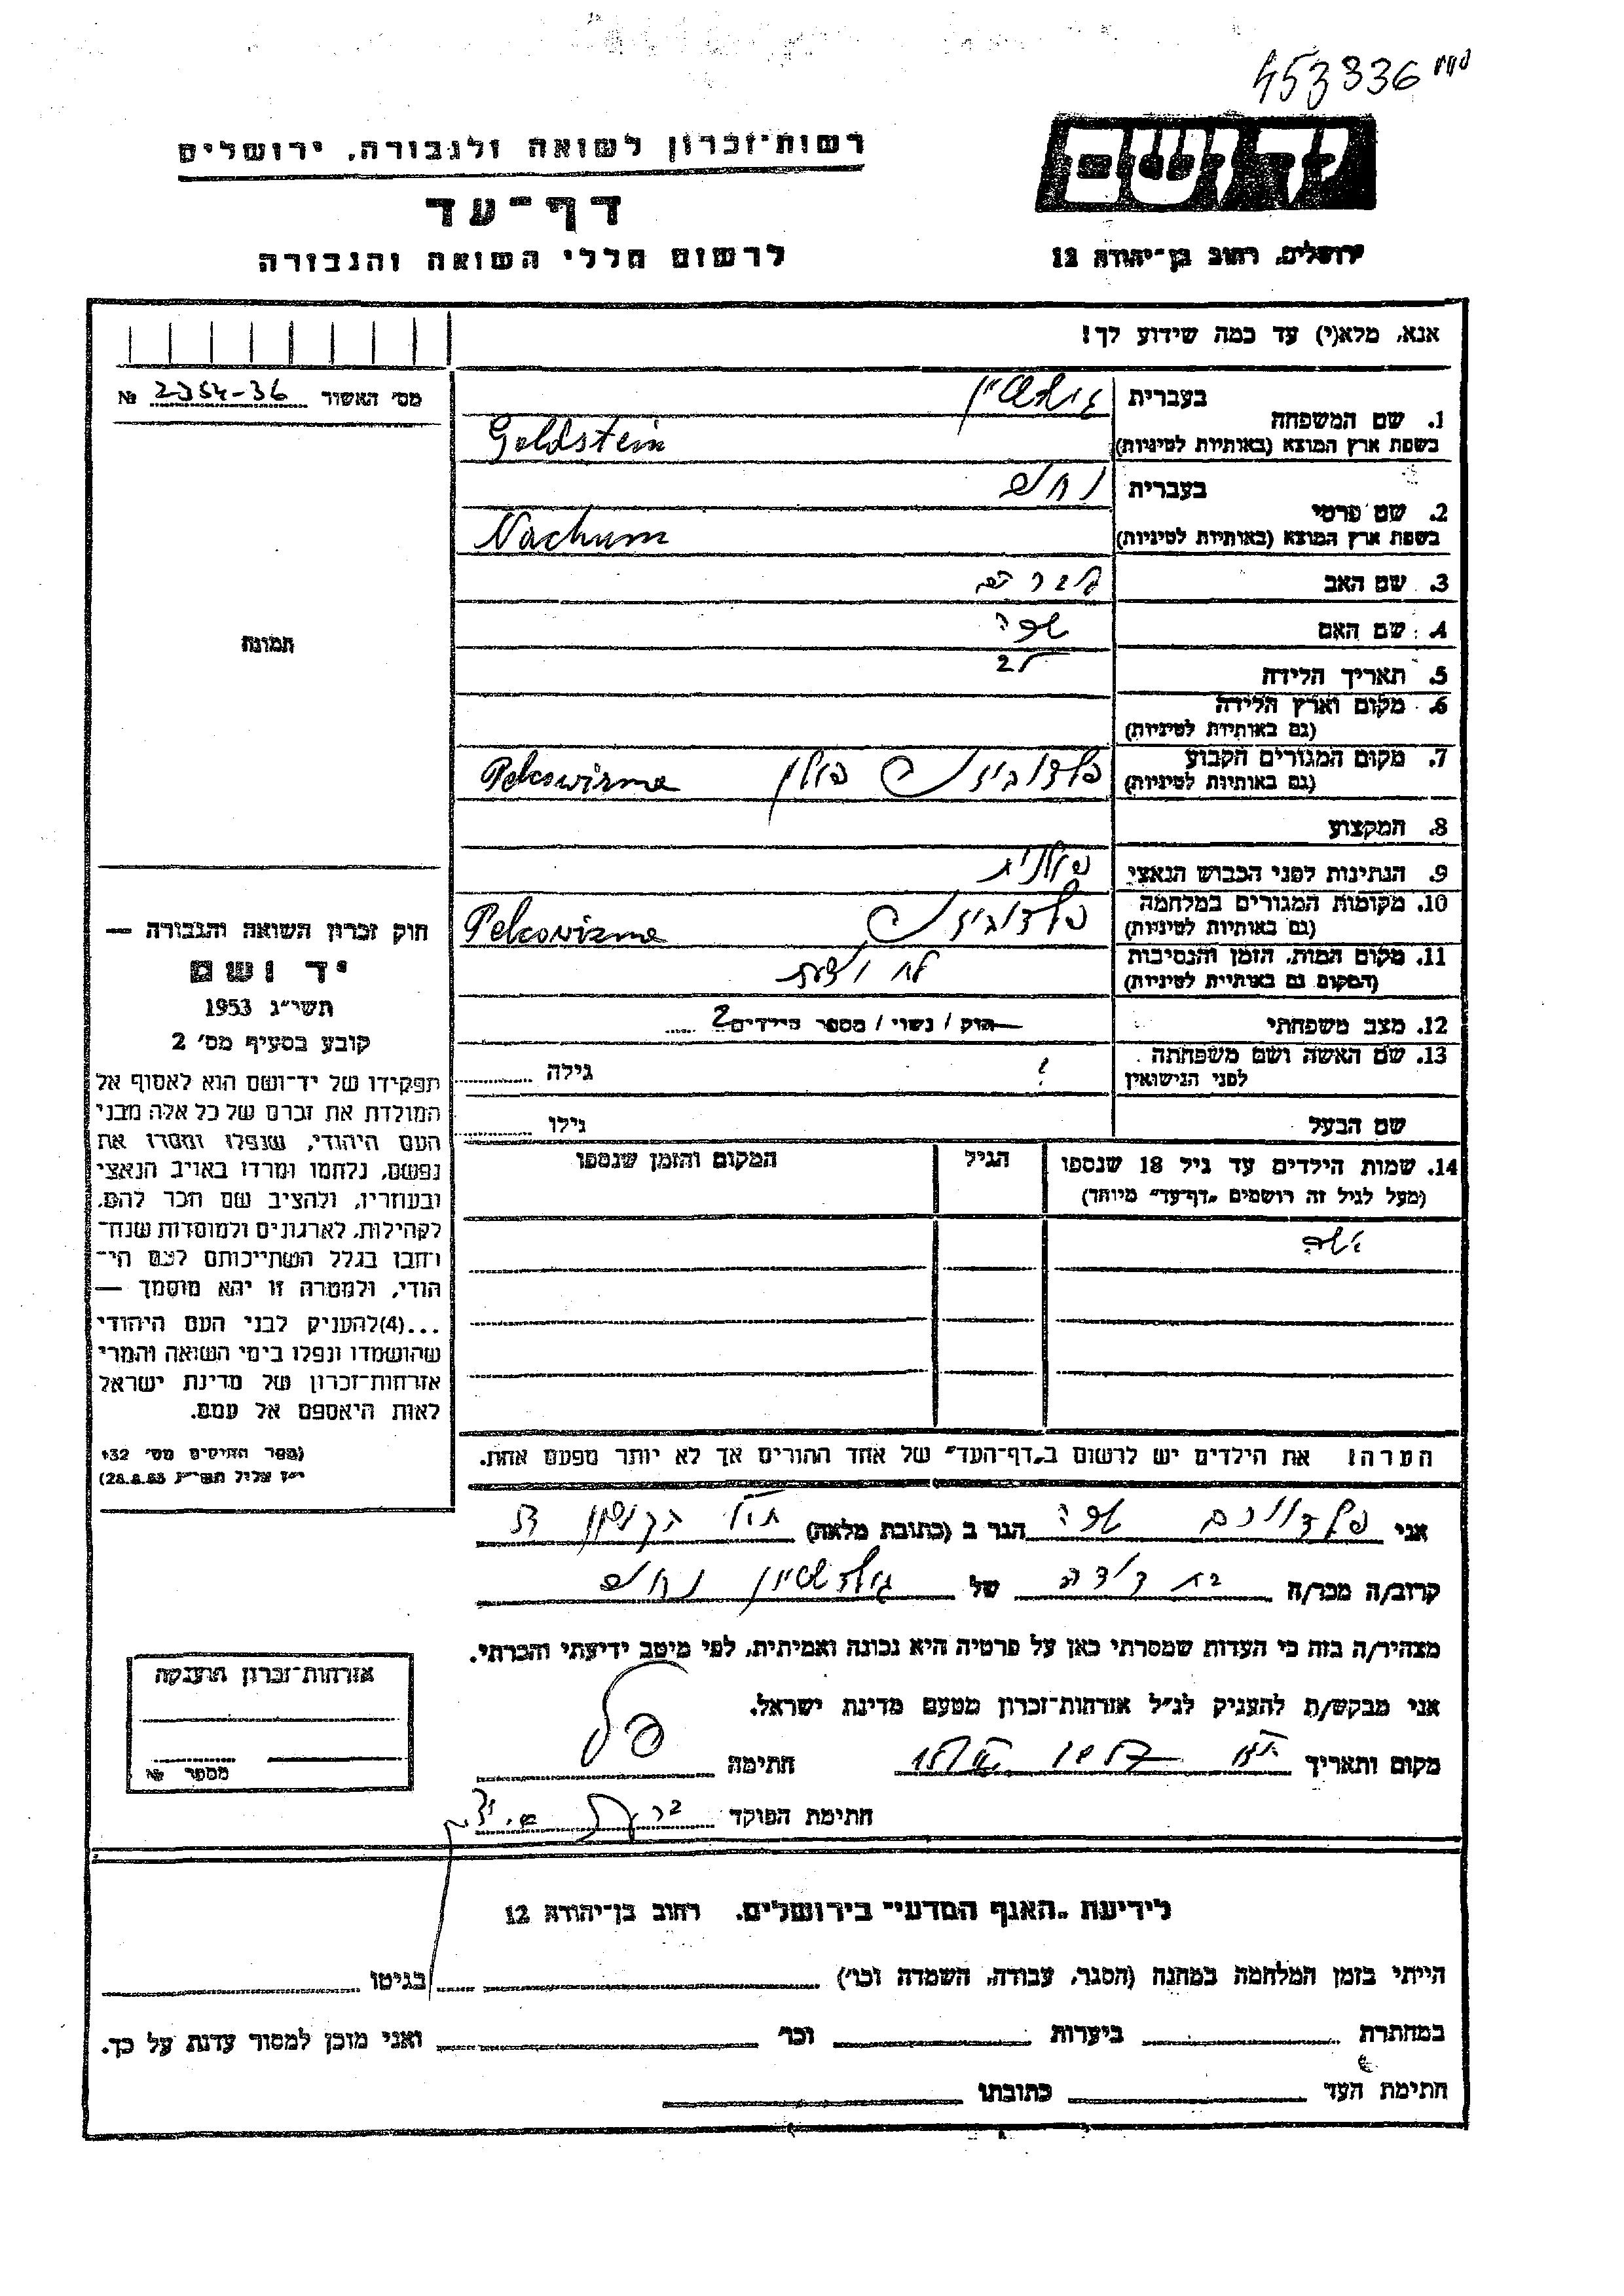 453336
יד ושם
רשות־זכרון לשואה ולגבורה, ירושלים
דף־עד
לרשום חללי השואה והגבורה
ירושלים, רחוב בן־יהודה 12
אנא, מלא(י) עד כמה שידוע לך!
מס׳ האשור 2354-36 №
תמונה
1. שם המשפחה
בעברית גולדשטיין
בשפת ארץ המוצא (באותיות לטיניות) Goldstein
2. שם פרטי
בעברית נחום
בשפת ארץ המוצא (באותיות לטיניות) Nachum
3. שם האב
4. שם האם
5. תאריך הלידה
6. מקום וארץ הלידה
(גם באותיות לטיניות)
7. מקום המגורים הקבוע פולין
(גם באותיות לטיניות)
8. המקצוע
9. הנתינות לפני הכבוש הנאצי פולנית
10. מקומות המגורים במלחמה
(גם באותיות לטיניות)
11. מקום המות, הזמן והנסיבות לא ידוע
(המקום גם באותיות לטיניות)
12. מצב משפחתי רווק / נשוי / מספר הילדים 2
13. שם האשה ושם משפחתה ? גילה
לפני הנישואין
שם הבעל גילו
14. שמות הילדים עד גיל 18 שנספו הגיל המקום והזמן שנספו
(מעל לגיל זה רושמים „דף־עד” מיוחד)
הערה! את הילדים יש לרשום ב„דף־העד” של אחד ההורים אך לא יותר מפעם אחת.
חוק זכרון השואה והגבורה —
יד ושם
תשי״ג 1953
קובע בסעיף מס׳ 2
תפקידו של יד־ושם הוא לאסוף אל
המולדת את זכרם של כל אלה מבני
העם היהודי, שנפלו ומסרו את
נפשם, נלחמו ומרדו באויב הנאצי
ובעוזריו, ולהציב שם וזכר להם,
לקהילות, לארגונים ולמוסדות שנח־
רבו בגלל השתייכותם לעם הי־
הודי, ולמטרה זו יהא מוסמך —
...(4) להעניק לבני העם היהודי
שהושמדו ונפלו בימי השואה והמרי
אזרחות־זכרון של מדינת ישראל
לאות היאספם אל עמם.
(ספר החוקים מס׳ 132
י״ז אלול תשי״ג 28.8.53)
אני הגר ב (כתובת מלאה)
קרוב/ה מכר/ה בת דודה של גולדשטיין נחום
מצהיר/ה בזה כי העדות שמסרתי כאן על פרטיה היא נכונה ואמיתית, לפי מיטב ידיעתי והכרתי.
אני מבקש/ת להעניק לנ״ל אזרחות־זכרון מטעם מדינת ישראל.
מקום ותאריך חתימה
חתימת הפוקד
אזרחות־זכרון הוענקה
מספר №
לידיעת „האגף המדעי” בירושלים, רחוב בן־יהודה 12
הייתי בזמן המלחמה במחנה (הסגר, עבודה, השמדה וכו׳) בגיטו
במחתרת ביערות וכו׳ ואני מוכן למסור עדות על כך.
חתימת העד כתובתו